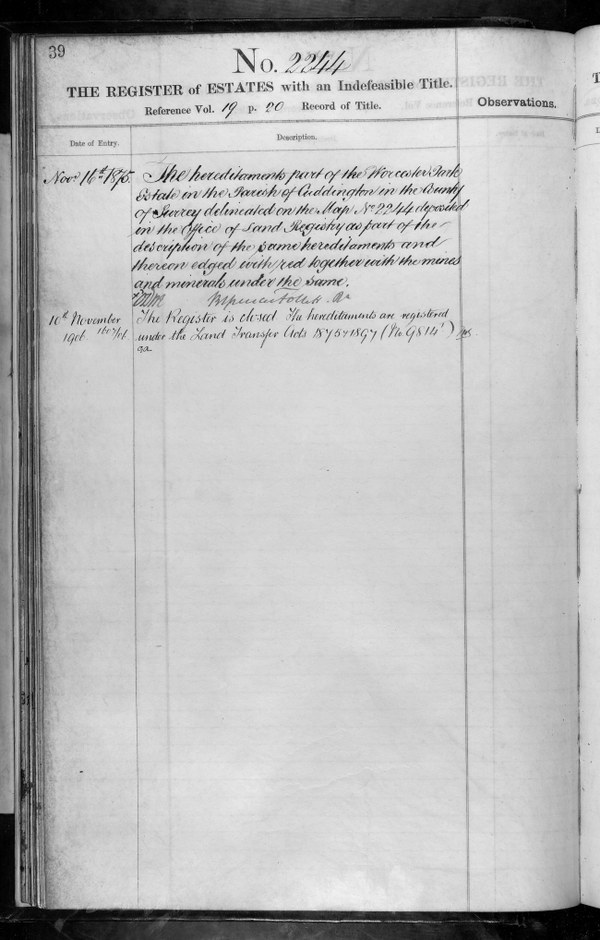 39
No. 2244
THE REGISTER of ESTATES with an Indefeasible Title.
Reference Vol. 19 p. 20 Record of Title.
Observations.
Date of Entry.
Description.
Novr 16th 1875.
The hereditaments part of the Worcester Park
Estate in the Parish of Cuddington in the County
of Surrey delineated on the Map No 2244 deposited
in the Office of Land Registry as part of the
description of the same hereditaments and
thereon edged with red together with the mines
and minerals under the same.
Brent Spencer Follett Rr
10th November
1906
The Register is closed The hereditaments are registered
under the Land Transfer Acts 1875 & 1897 (No 9814)